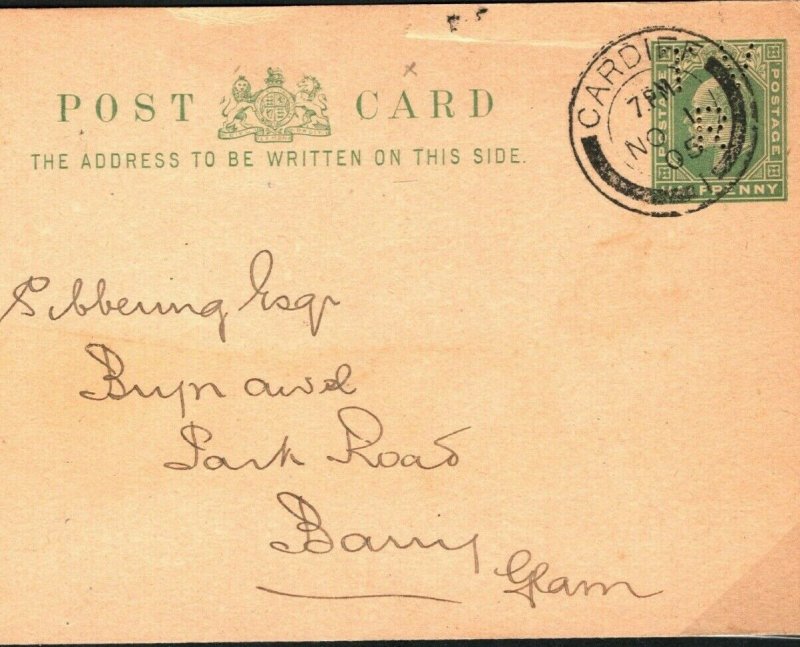 POST CARD
THE ADDRESS TO BE WRITTEN ON THIS SIDE.
CARDIFF
7 PM
NO 1
05
POSTAGE
POSTAGE
HALFPENNY
Sibbering Esqr
Bryn awel
Park Road
Barry
Glam